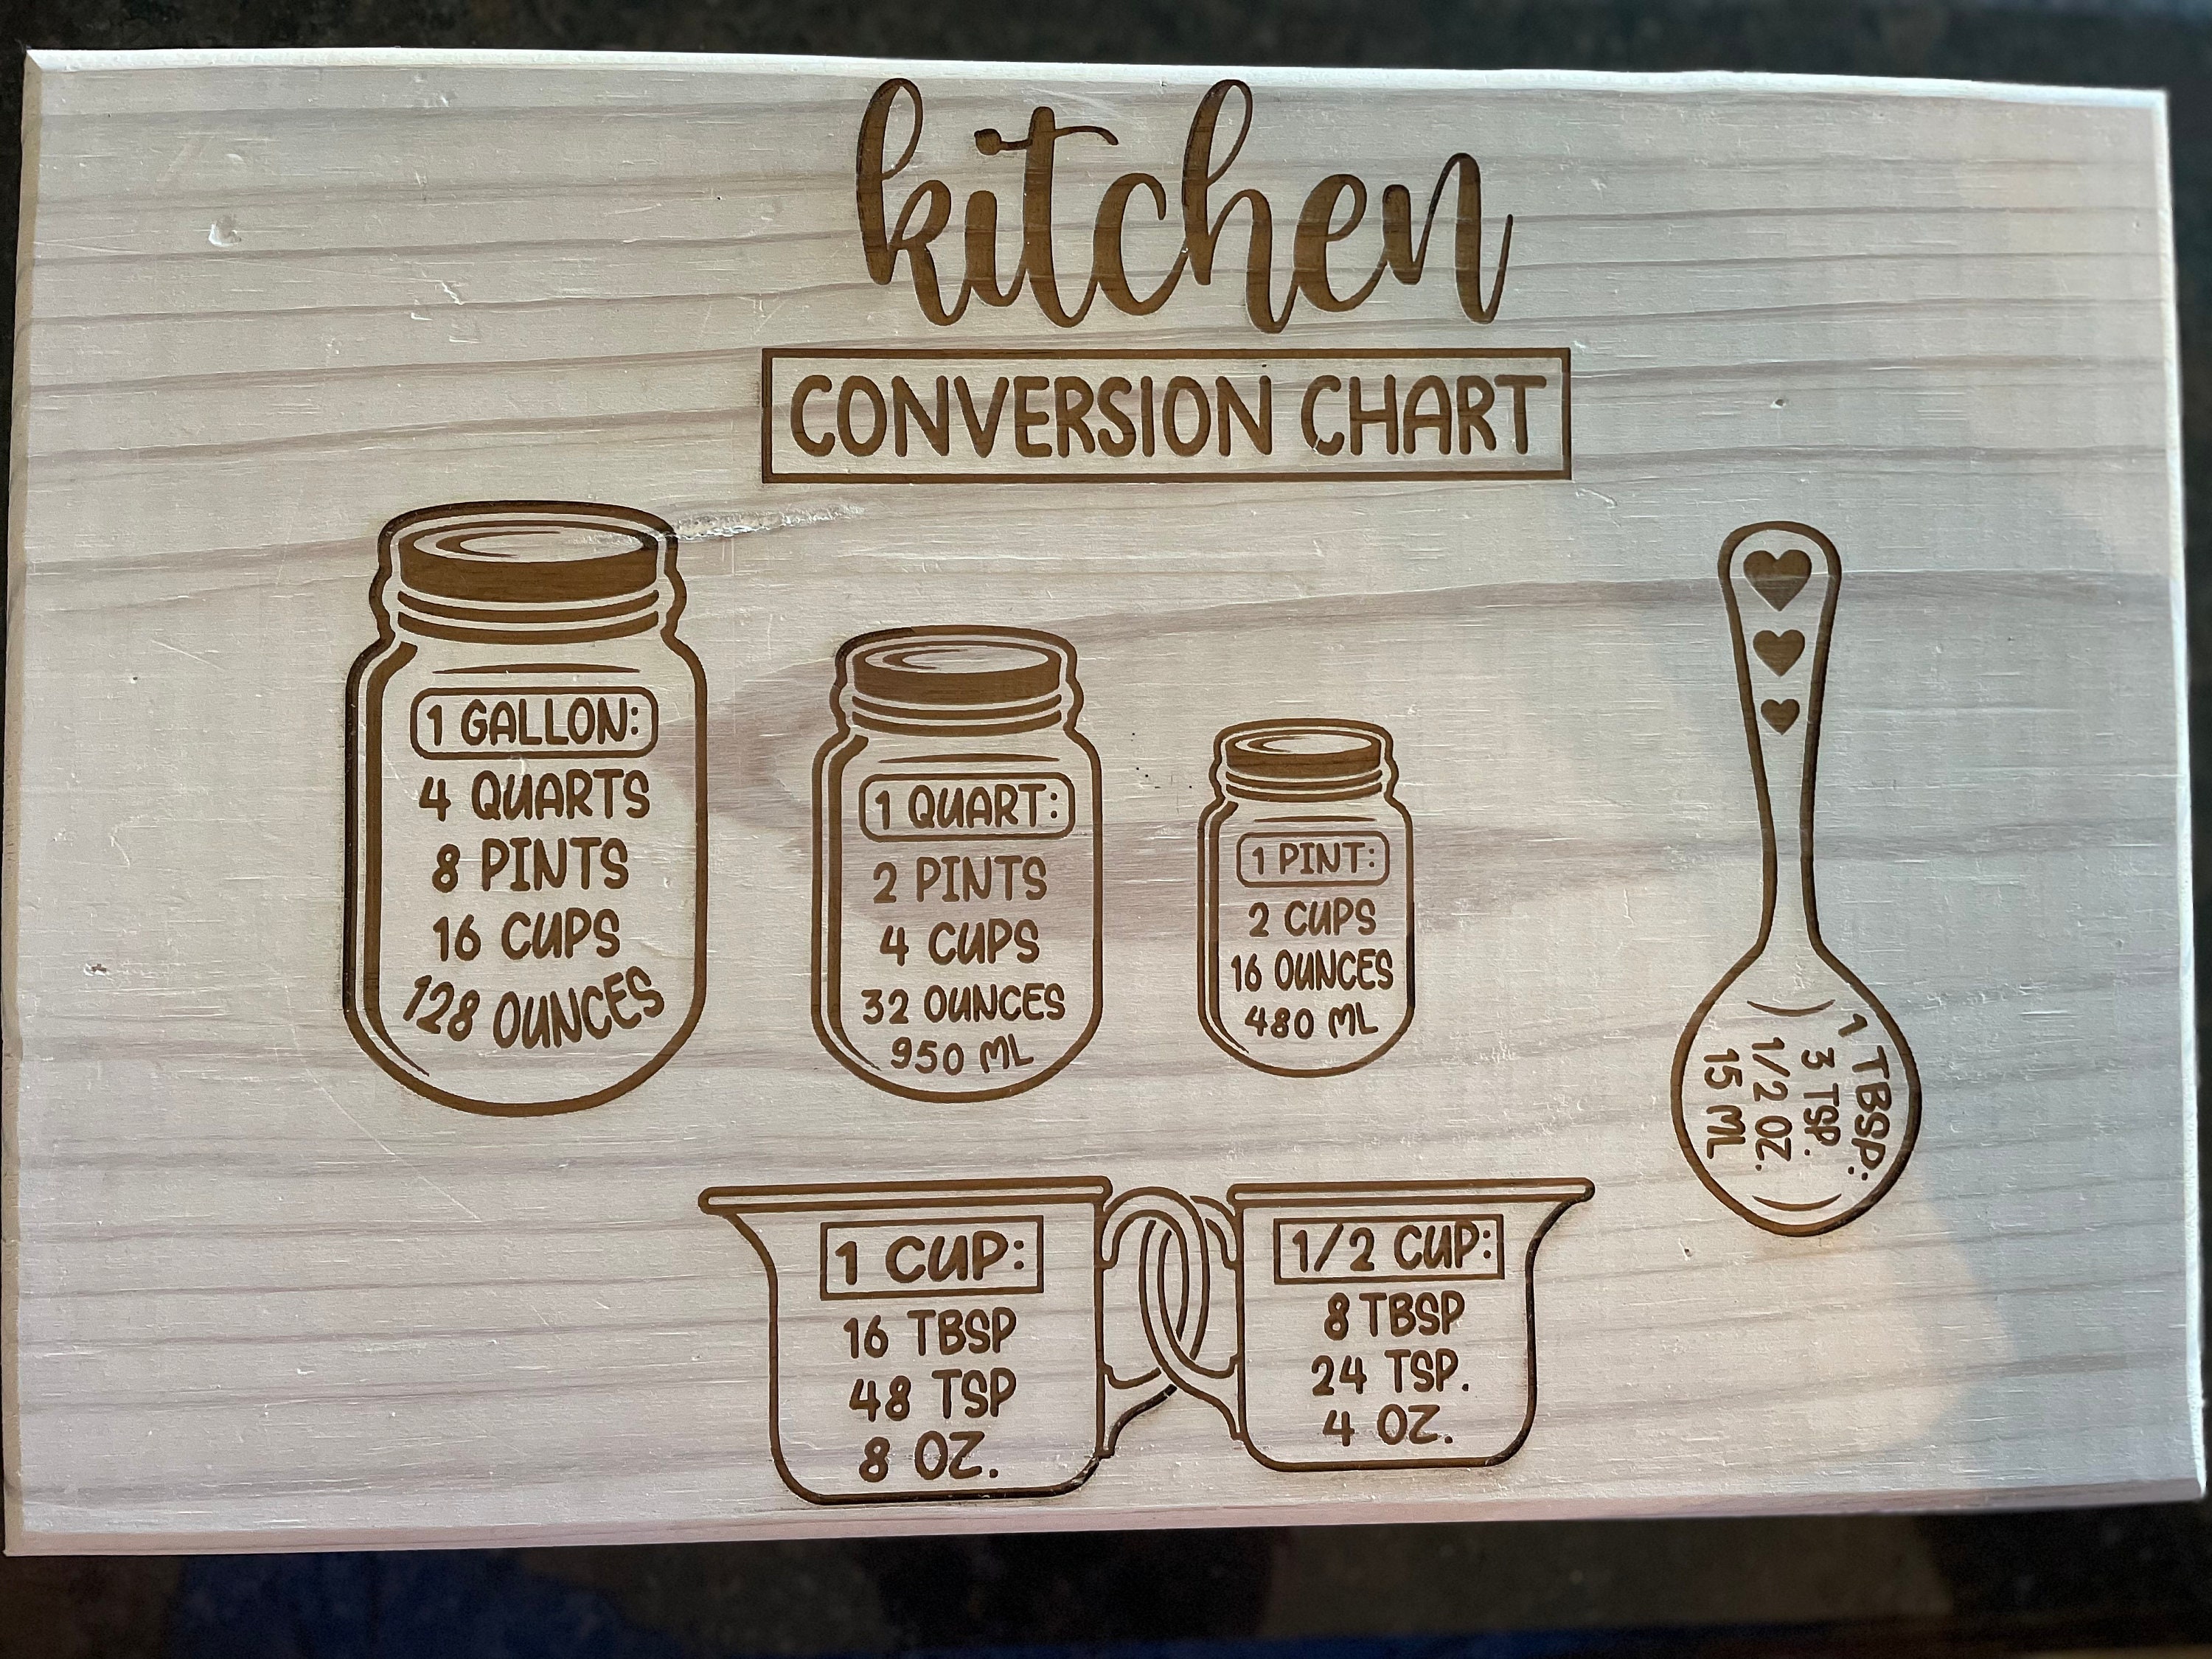 kitchen
CONVERSION CHART
1 GALLON:
4 QUARTS
8 PINTS
16 CUPS
128 OUNCES
1 QUART:
2 PINTS
4 CUPS
32 OUNCES
950 ML
1 PINT:
2 CUPS
16 OUNCES
480 ML
1 TBSP:
3 TSP.
1/2 OZ.
15 ML
1 CUP:
16 TBSP
48 TSP
8 OZ.
1/2 CUP:
8 TBSP
24 TSP.
4 OZ.